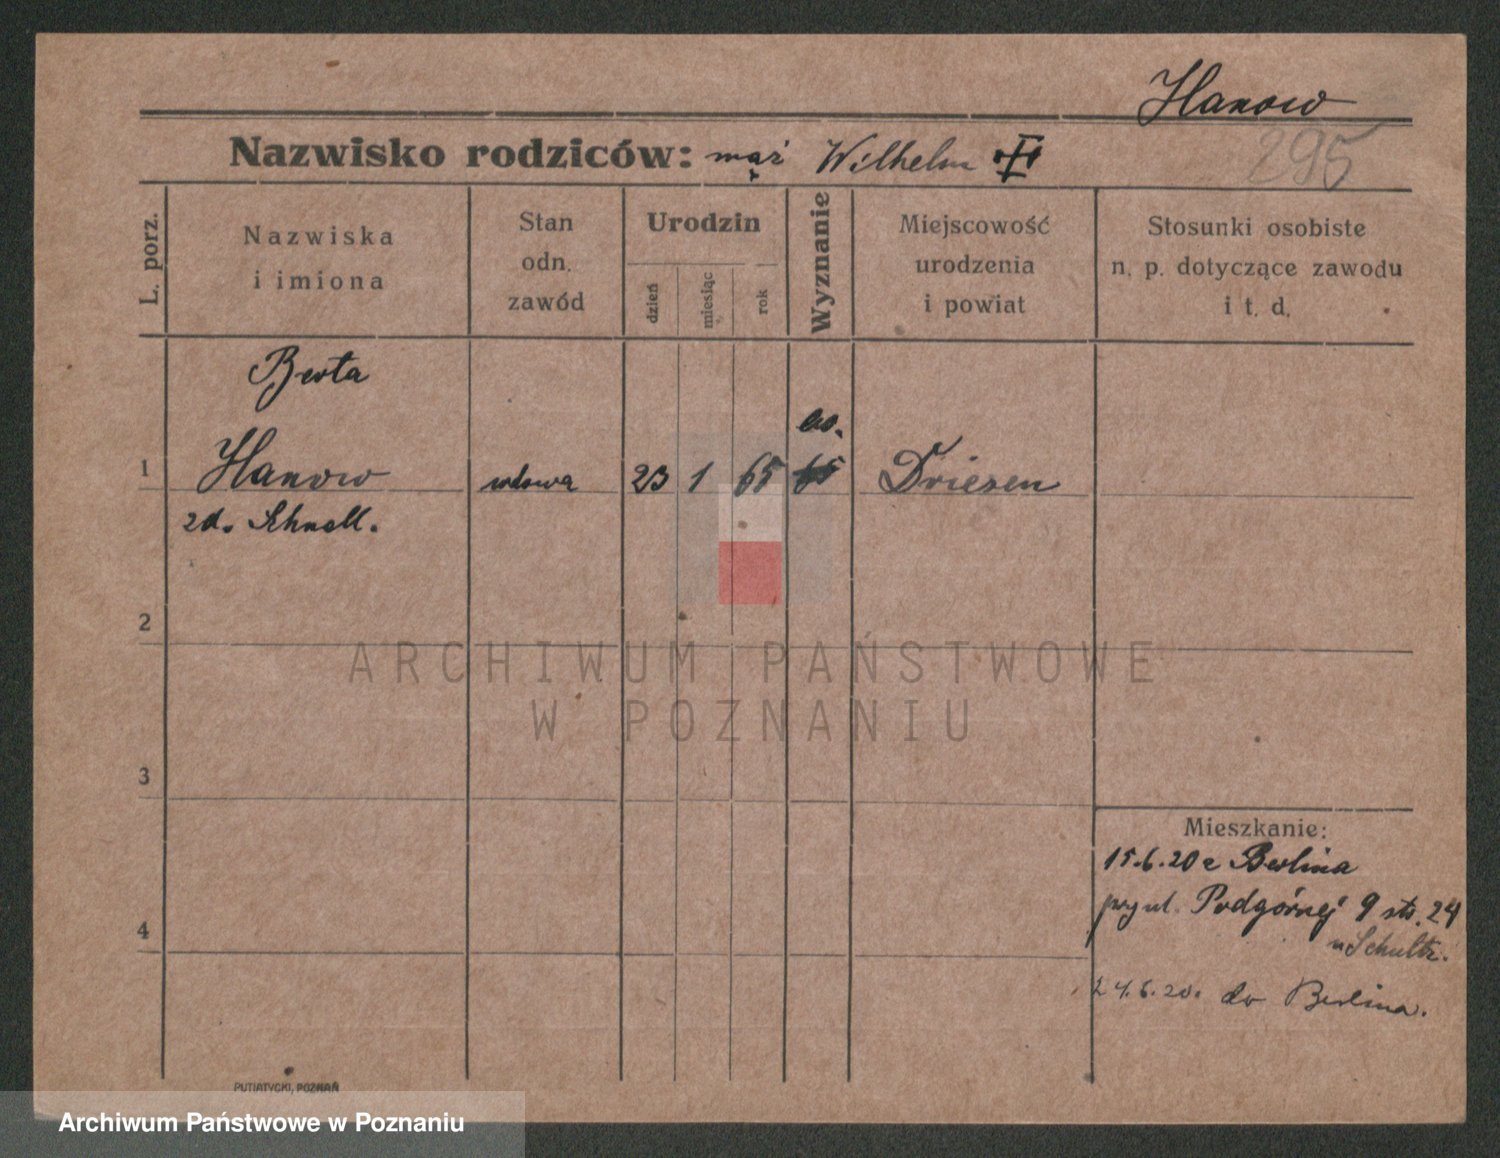 Hanow
295
Nazwisko rodziców: mąż Wilhelm
L. porz.
Nazwiska
i imiona
Stan
odn.
zawód
Urodzin
dzień
miesiąc
rok
Wyznanie
Miejscowość
urodzenia
i powiat
Stosunki osobiste
n. p. dotyczące zawodu
i t. d.
Berta
ew.
1 Hanow wdowa 23 1 65 65 Driesen
zd. Schnell.
2
ARCHIWUM PAŃSTWOWE
W POZNANIU
3
Mieszkanie:
15.6.20 z Berlina
przy ul. Podgórnej 9 str. 24
u Schultz.
4
24.6.20. do Berlina.
PUTIATYCKI, POZNAŃ
Archiwum Państwowe w Poznaniu